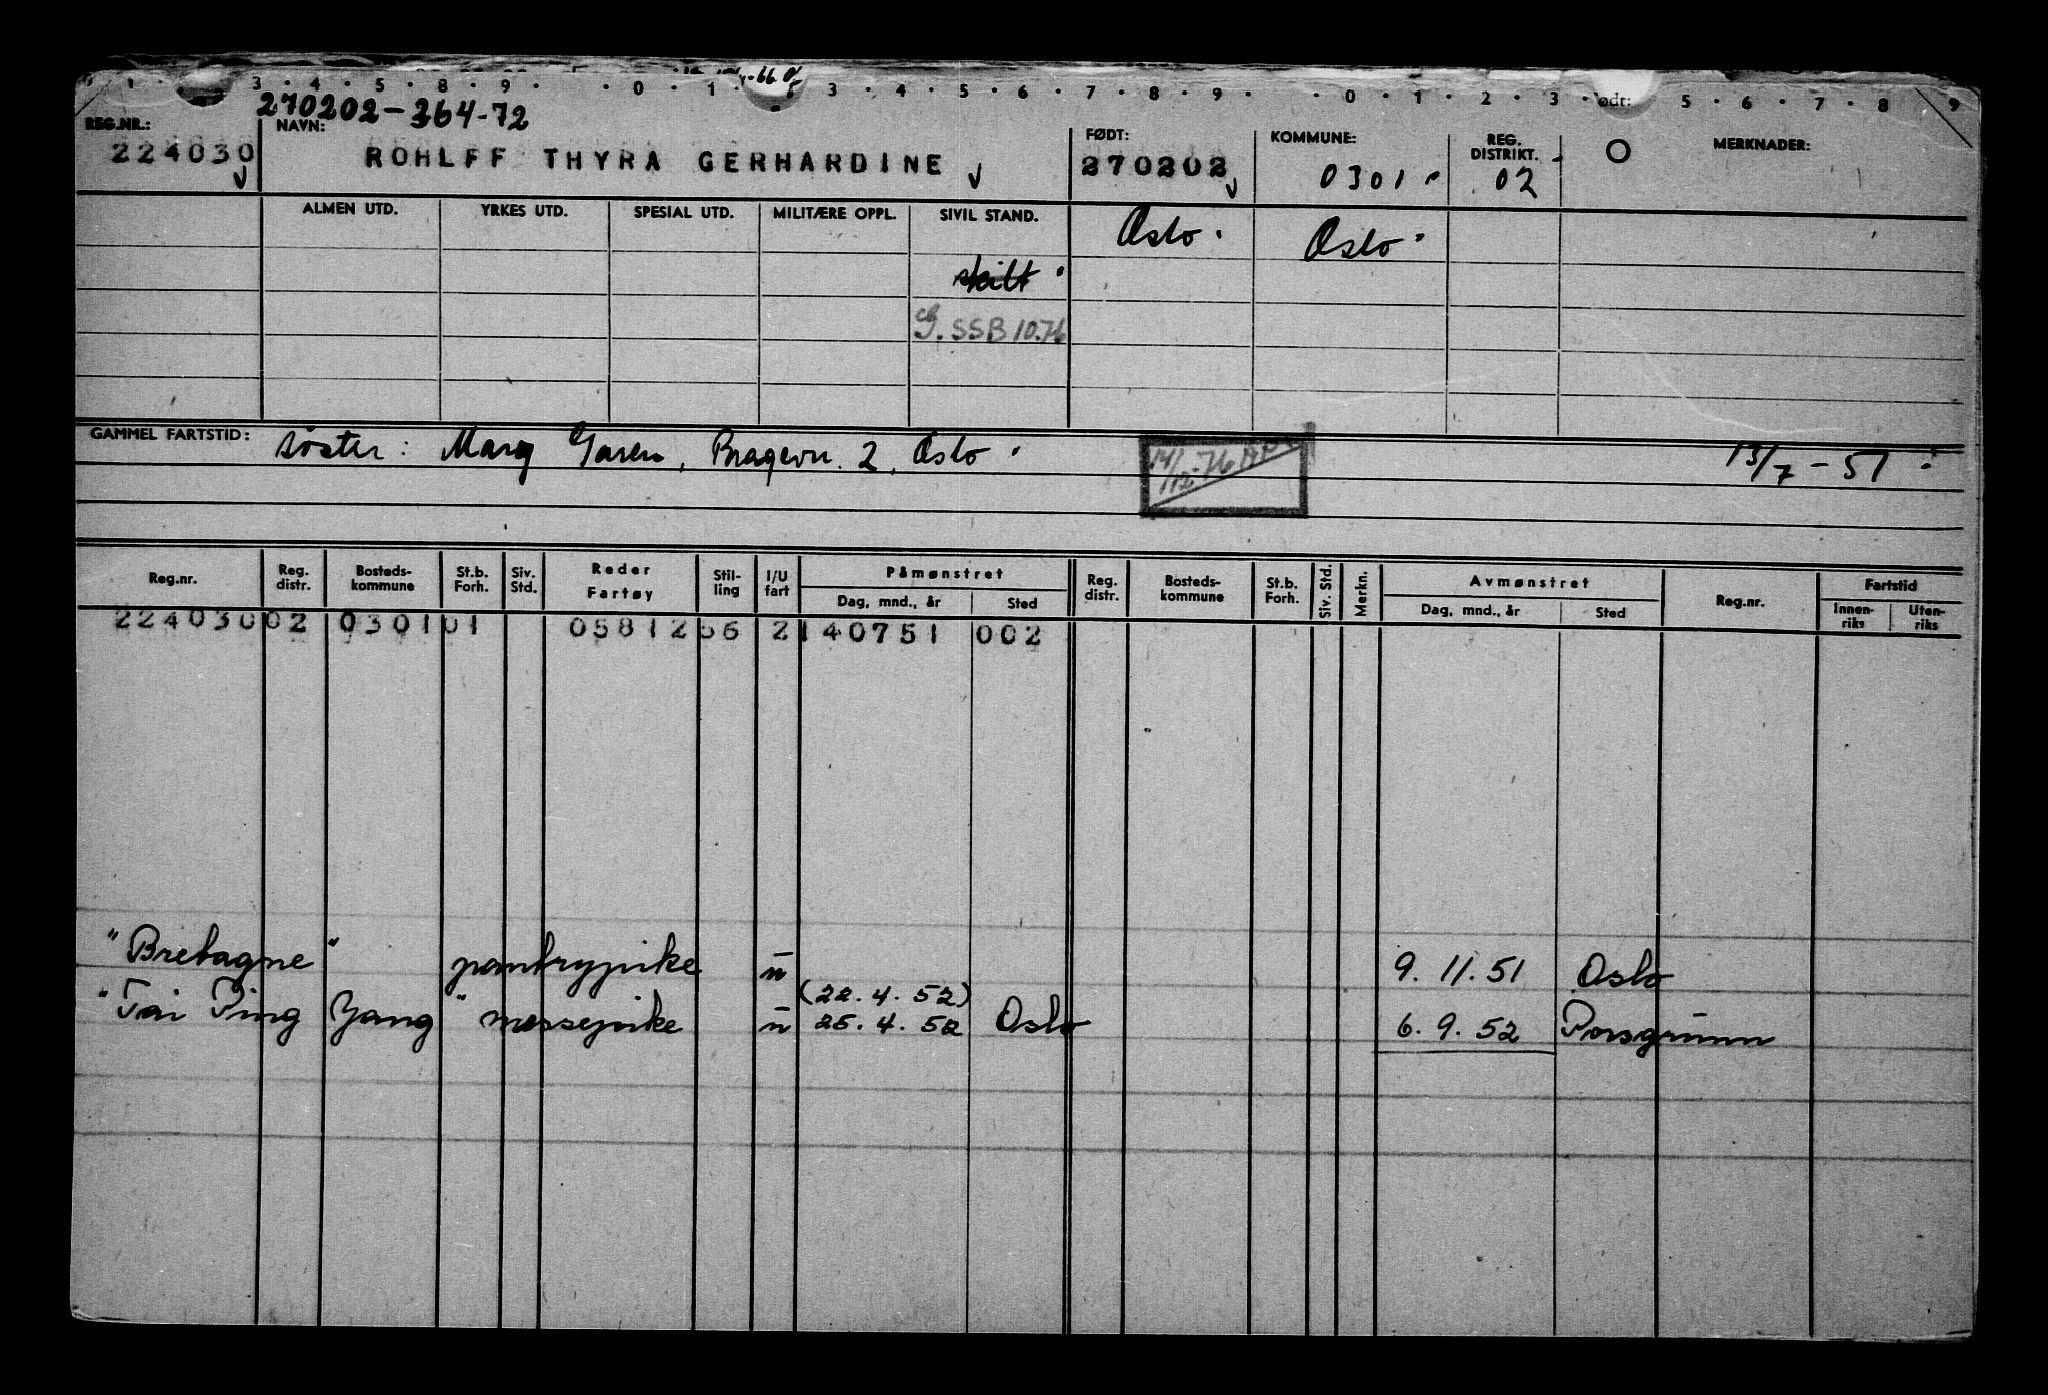 1 · 3 · 4 · 5 · 8 · 9 · · 0 · 1 · 3 · 4 · 5 · 6 · 7 · 8 · 9 · · 0 · 1 · 2 · 3 · ødt: 5 · 6 · 7 · 8 9
270202-364-72
REG.NR.: NAVN: FØDT: KOMMUNE: REG. DISTRIKT. MERKNADER:
224030 ROHLFF THYRA GERHARDINE 270202 0301 02
ALMEN UTD. YRKES UTD. SPESIAL UTD. MILITÆRE OPPL. SIVIL STAND. Oslo Oslo
skilt
G. SSB 10.76
GAMMEL FARTSTID: søster: Marg , Bragevn. 2, Oslo 14/12-76 13/7-51
Reg.nr. Reg. distr. Bosteds-kommune St.b. Forh. Siv. Std. Reder Fartøy Stil-ling I/U fart Påmønstret Dag, mnd., år Sted Reg. distr. Bosteds-kommune St.b. Forh. Siv. Std. Merkn. Avmønstret Dag, mnd., år Sted Reg.nr. Fartstid Innen-riks Uten-riks
224030 02 0301 01 05812 56 2 140751 002
"Bretagne" pantrypike u 9.11.51 Oslo
(22.4.52)
"Tai Ping Yang" messepike u 25.4.52 Oslo 6.9.52 Porsgrunn